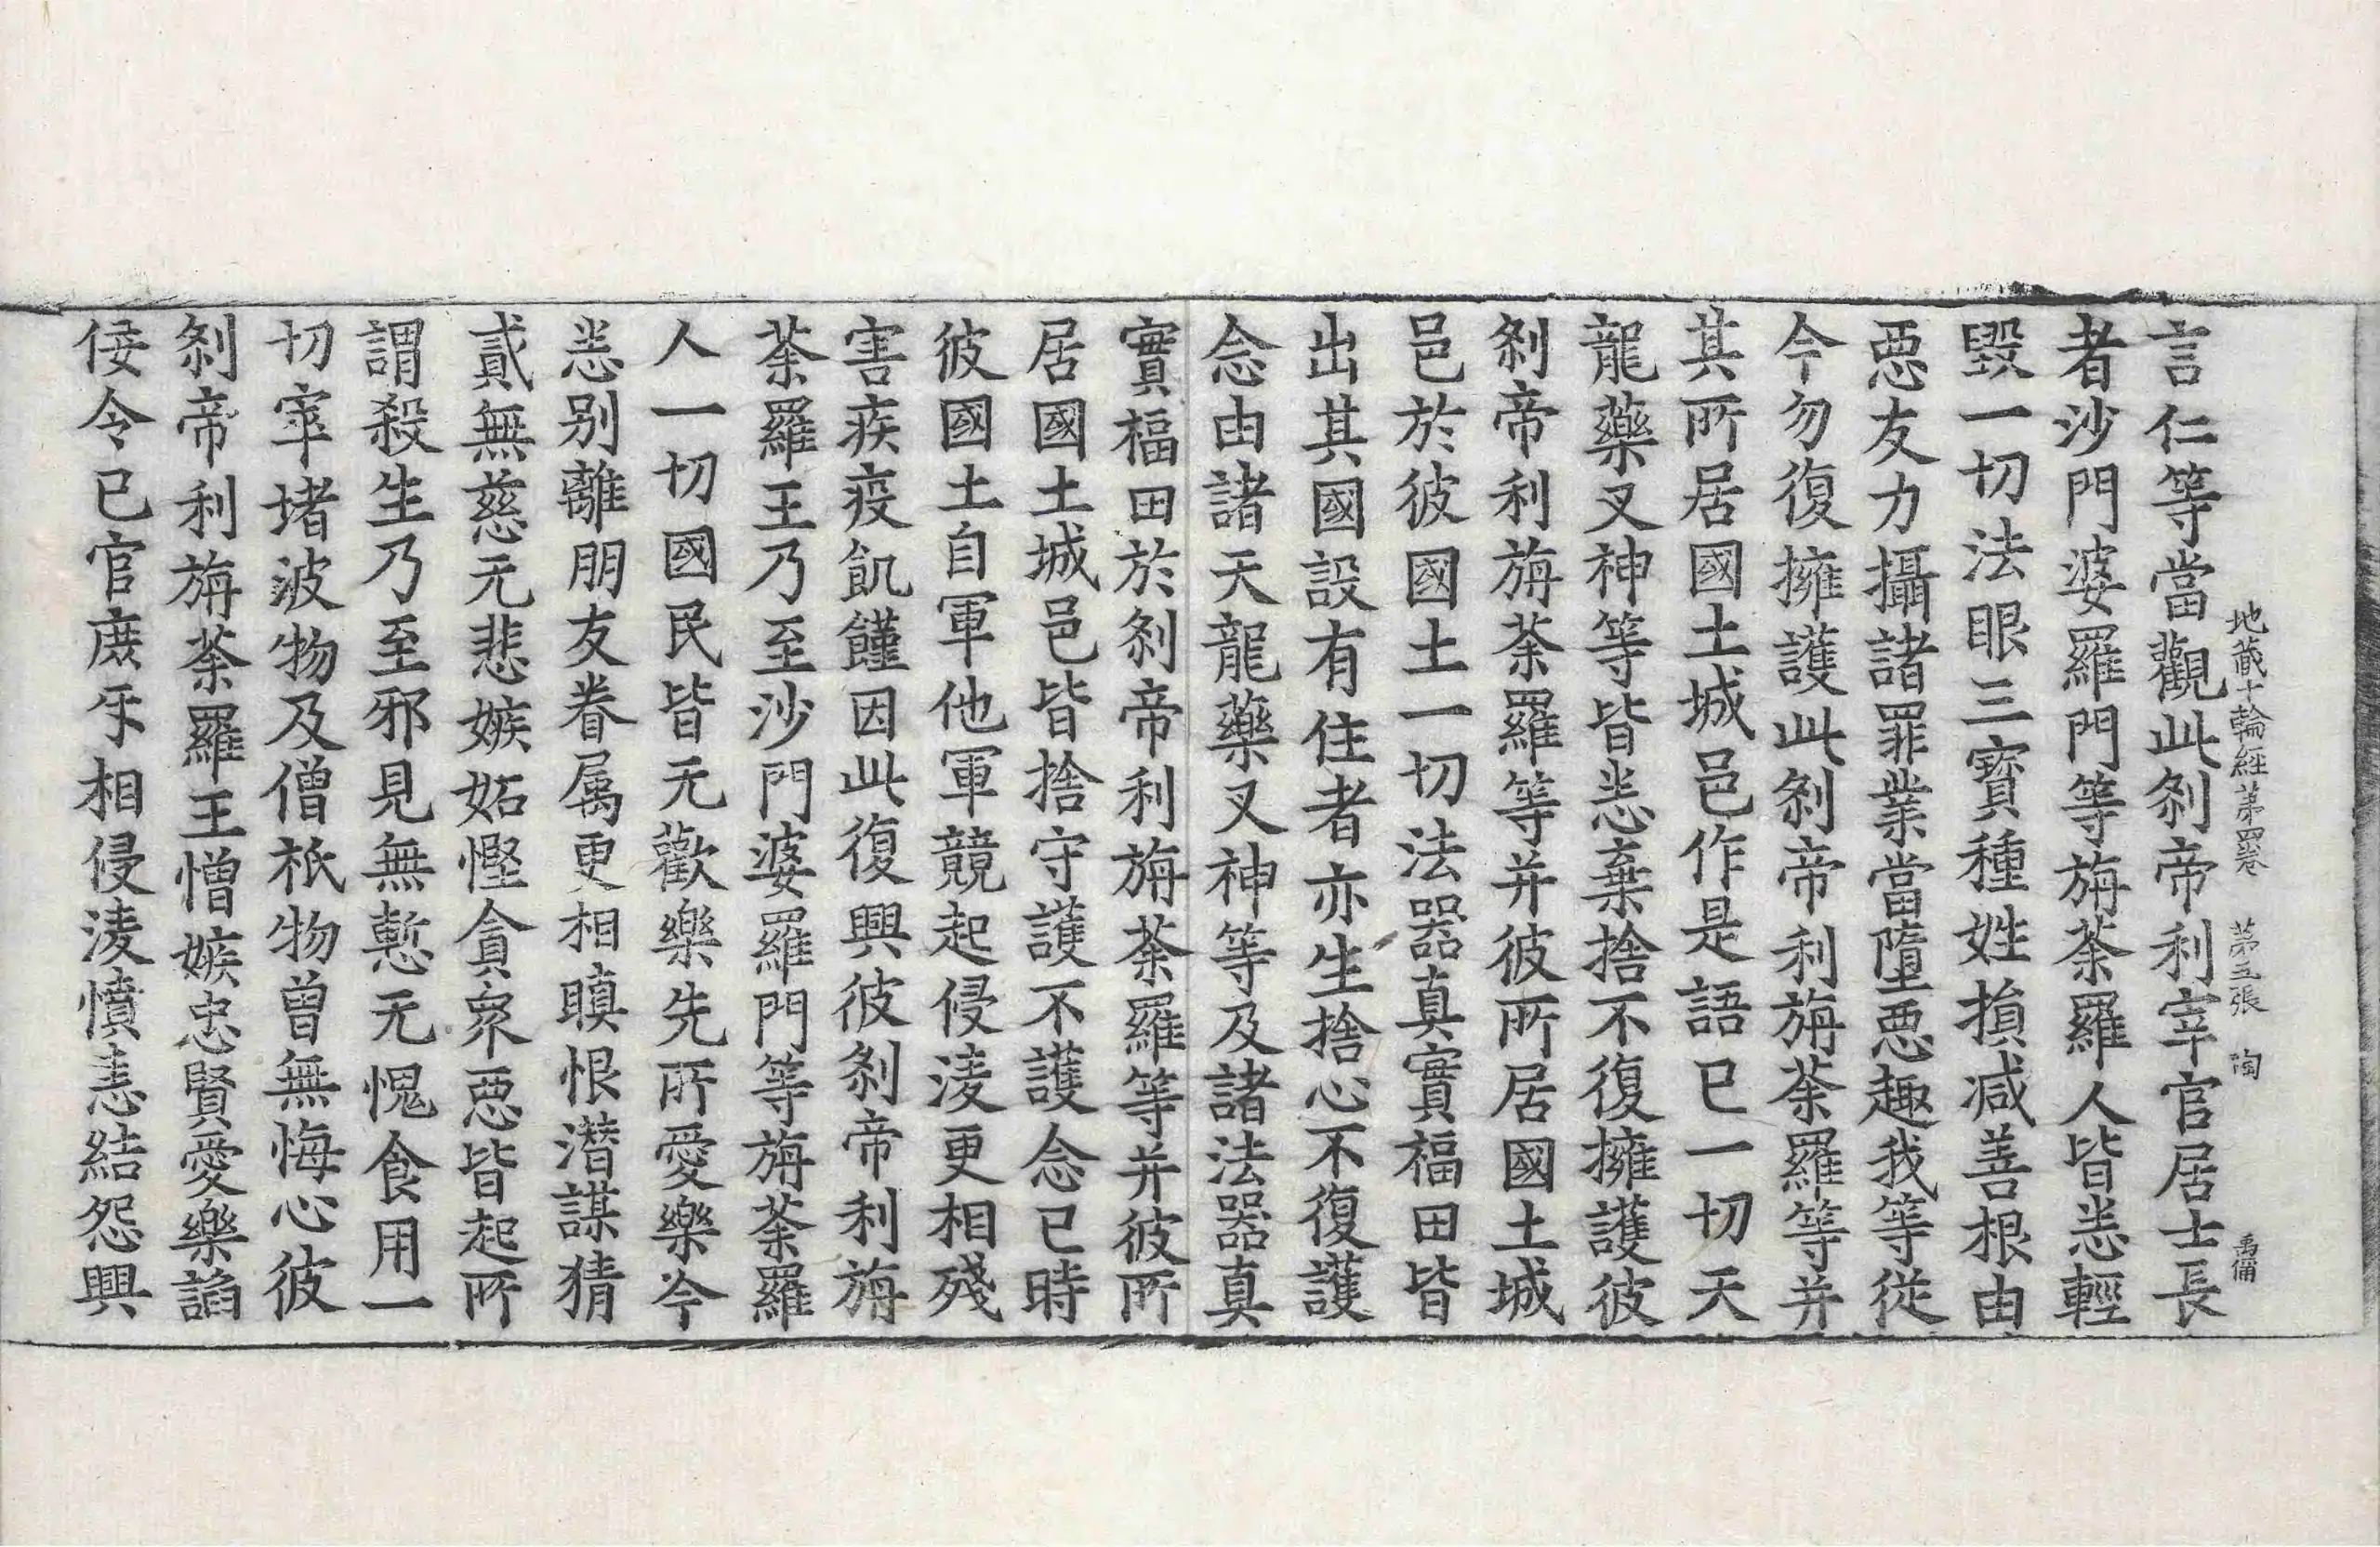 地藏十輪經第四卷　第五張　陶　禹備
言仁等當觀此刹帝利宰官居士長
者沙門婆羅門等旃荼羅人皆悉輕
毀一切法眼三寶種姓損減善根由
惡友力攝諸罪業當墮惡趣我等從
今勿復擁護此刹帝利旃荼羅等并
其所居國土城邑作是語已一切天
龍藥叉神等皆悉棄捨不復擁護彼
刹帝利旃荼羅等并彼所居國土城
邑於彼國土一切法器真實福田皆
出其國設有住者亦生捨心不復護
念由諸天龍藥叉神等及諸法器真
實福田於刹帝利旃荼羅等并彼所
居國土城邑皆捨守護不護念已時
彼國土自軍他軍競起侵淩更相殘
害疾疫飢饉因此復興彼刹帝利旃
荼羅王乃至沙門婆羅門等旃荼羅
人一切國民皆无歡樂先所愛樂今
悉别離朋友眷属更相瞋恨潛謀猜
貳無慈无悲嫉妬慳貪衆惡皆起所
謂殺生乃至邪見無慙无愧食用一
切窣堵波物及僧祇物曾無悔心彼
刹帝利旃荼羅王憎嫉忠賢愛樂諂
佞令已官庶㸦相侵淩憤恚結怨興